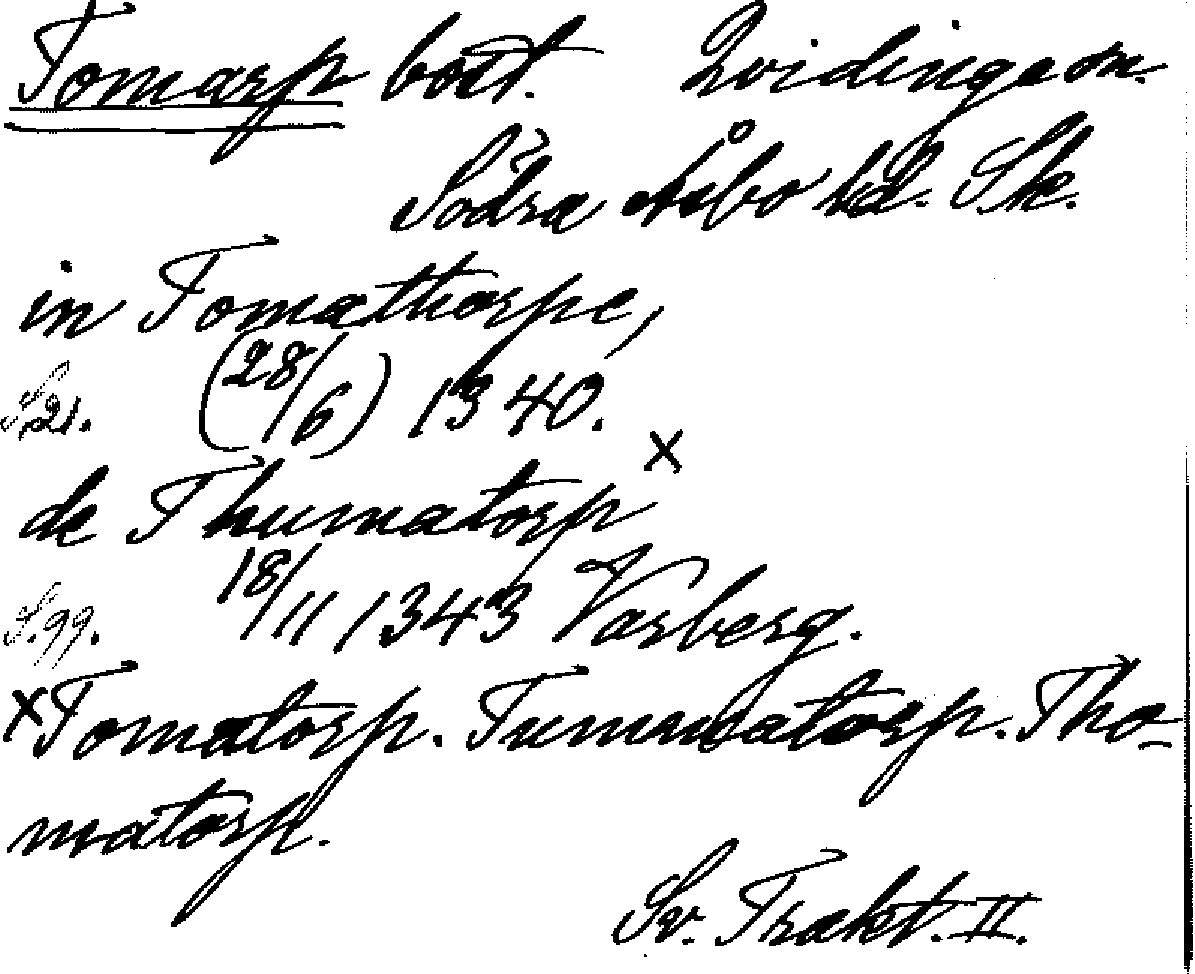 Tomarp bost. Qvidinge sn.
Södra Åsbo hd. Sk.
in Tomathorpe,
S. 21. (28/6) 1340.
de Thumatorp x
S. 99. 18/11 1343 Varberg.
x Tomatorp. Tummatorp. Tho-
matorp.
Sv. Trakt. II.